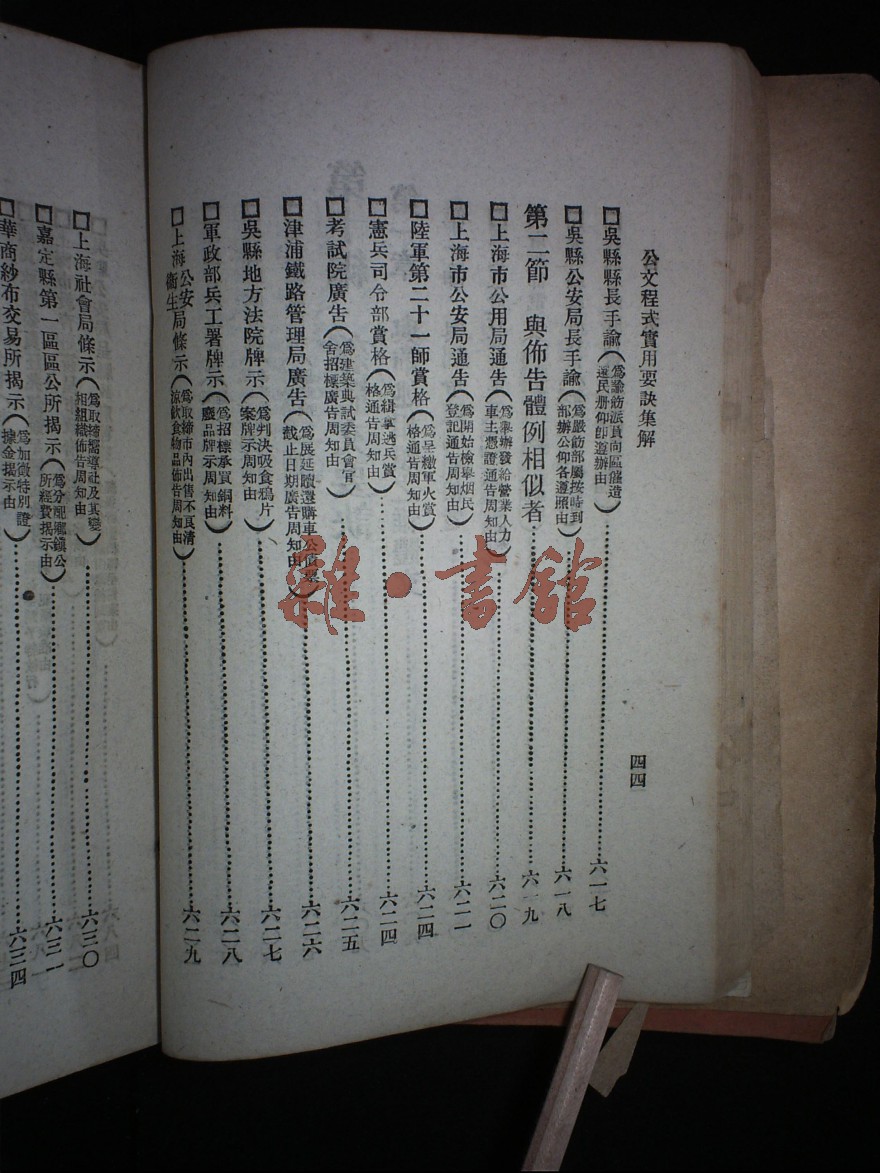 公文程式實用要訣集解
四四
□吳縣縣長手諭(爲諭飭派員向區催造還民册仰卽遵辦由)……六一七
□吳縣公安局長手諭(爲嚴飭部屬按時到部辦公仰各遵照由)……六一八
第二節 與佈告體例相似者……六一九
□上海市公用局通告(爲舉辦發給營業人力車主憑證通告周知由)……六二〇
□上海市公安局通告(爲開始檢舉烟民登記通告周知由)……六二一
□陸軍第二十一師賞格(爲呈繳軍火賞格通告周知由)……六二四
□憲兵司令部賞格(爲緝拿逃兵賞格通告周知由)……六二四
□考試院廣告(爲建築典試委員會官舍招標廣告周知由)……六二五
□津浦鐵路管理局廣告(爲展延贖還購車公債票截止日期廣告周知由)……六二六
□吳縣地方法院牌示(爲判決吸食鴉片案牌示周知由)……六二七
□軍政部兵工署牌示(爲招標承買銅料廢品牌示周知由)……六二八
□上海公安衛生局條示(爲取締市內出售不良清涼飲食物品佈告周知由)……六二九
□上海社會局條示(爲取締嚮導社及其變相組織佈告周知由)……六三〇
□嘉定縣第一區區公所揭示(爲分配鄉鎮公所經費揭示由)……六三一
□華商紗布交易所揭示(爲加徵特別證據金揭示由)……六三四
雜·書館